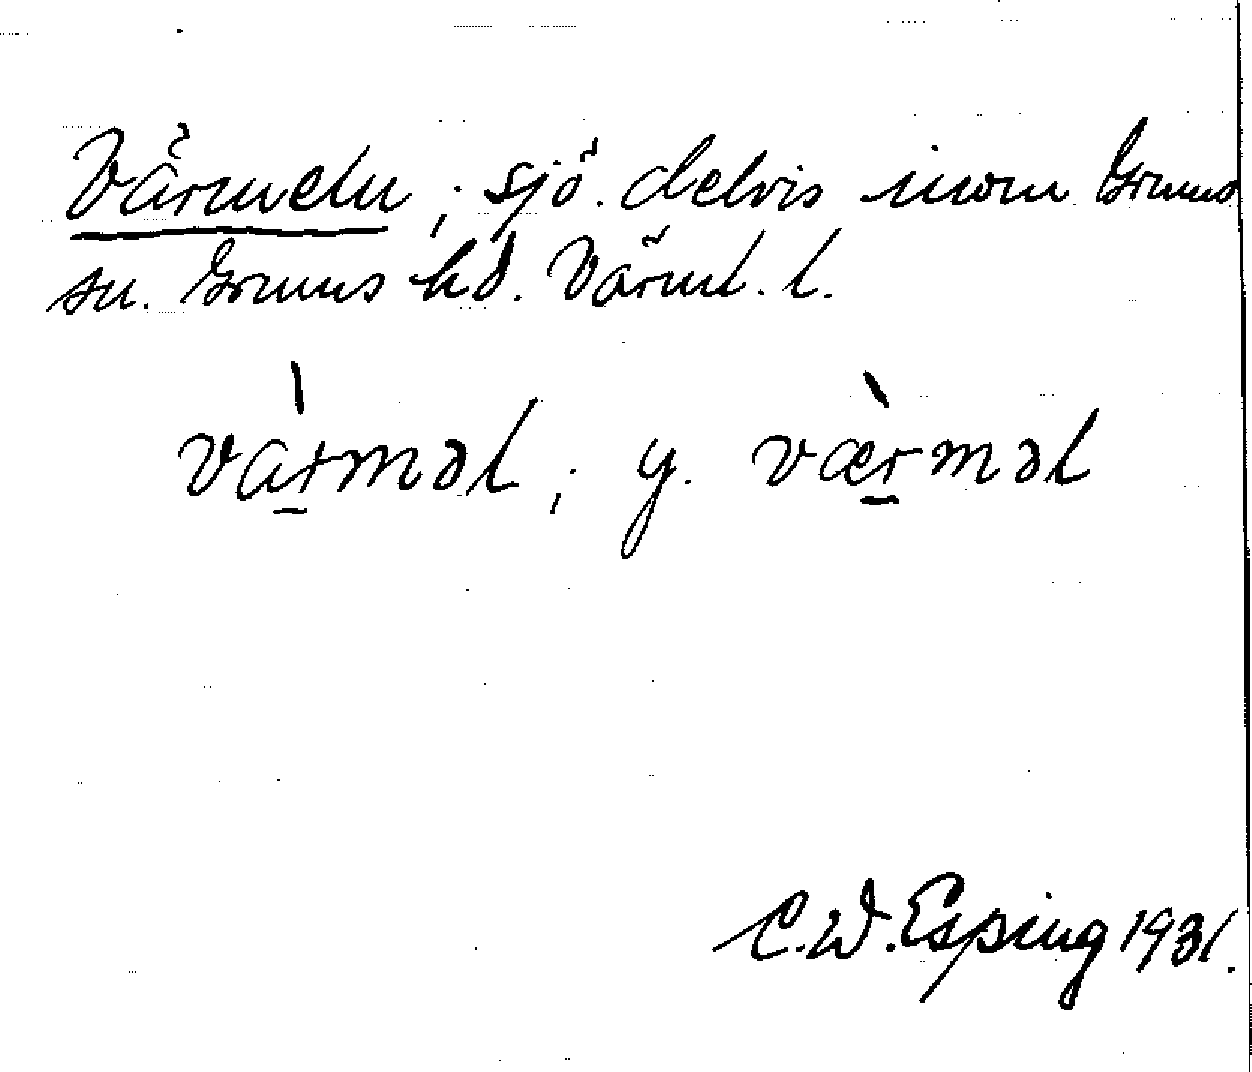 Värmeln; sjö. delvis inom Grums
sn. Grums hd. Värml. l.
vàrməl; y. væ̀rməl
C.W. Esping 1931.